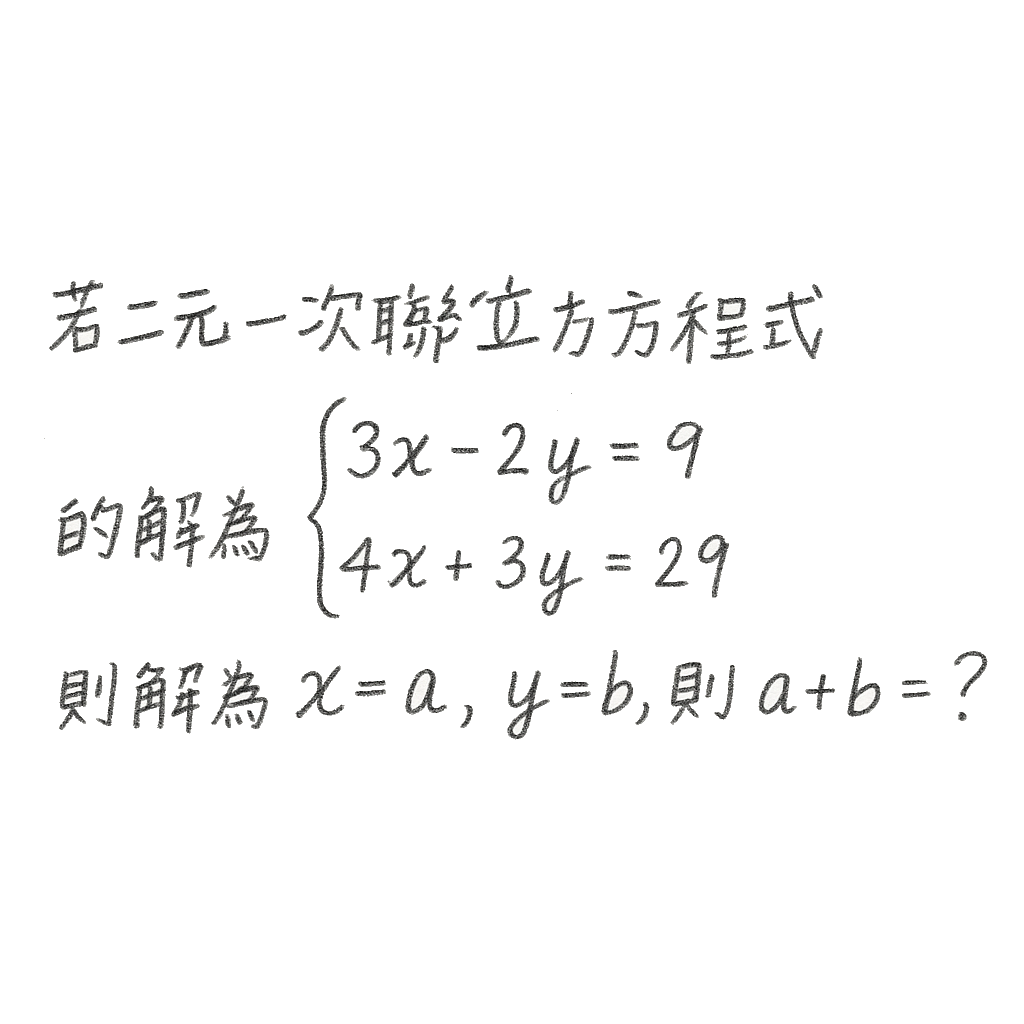 若二元一次聯立方方程式
的解為 { 3x - 2y = 9
4x + 3y = 29
則解為 x = a, y = b, 則 a + b = ?